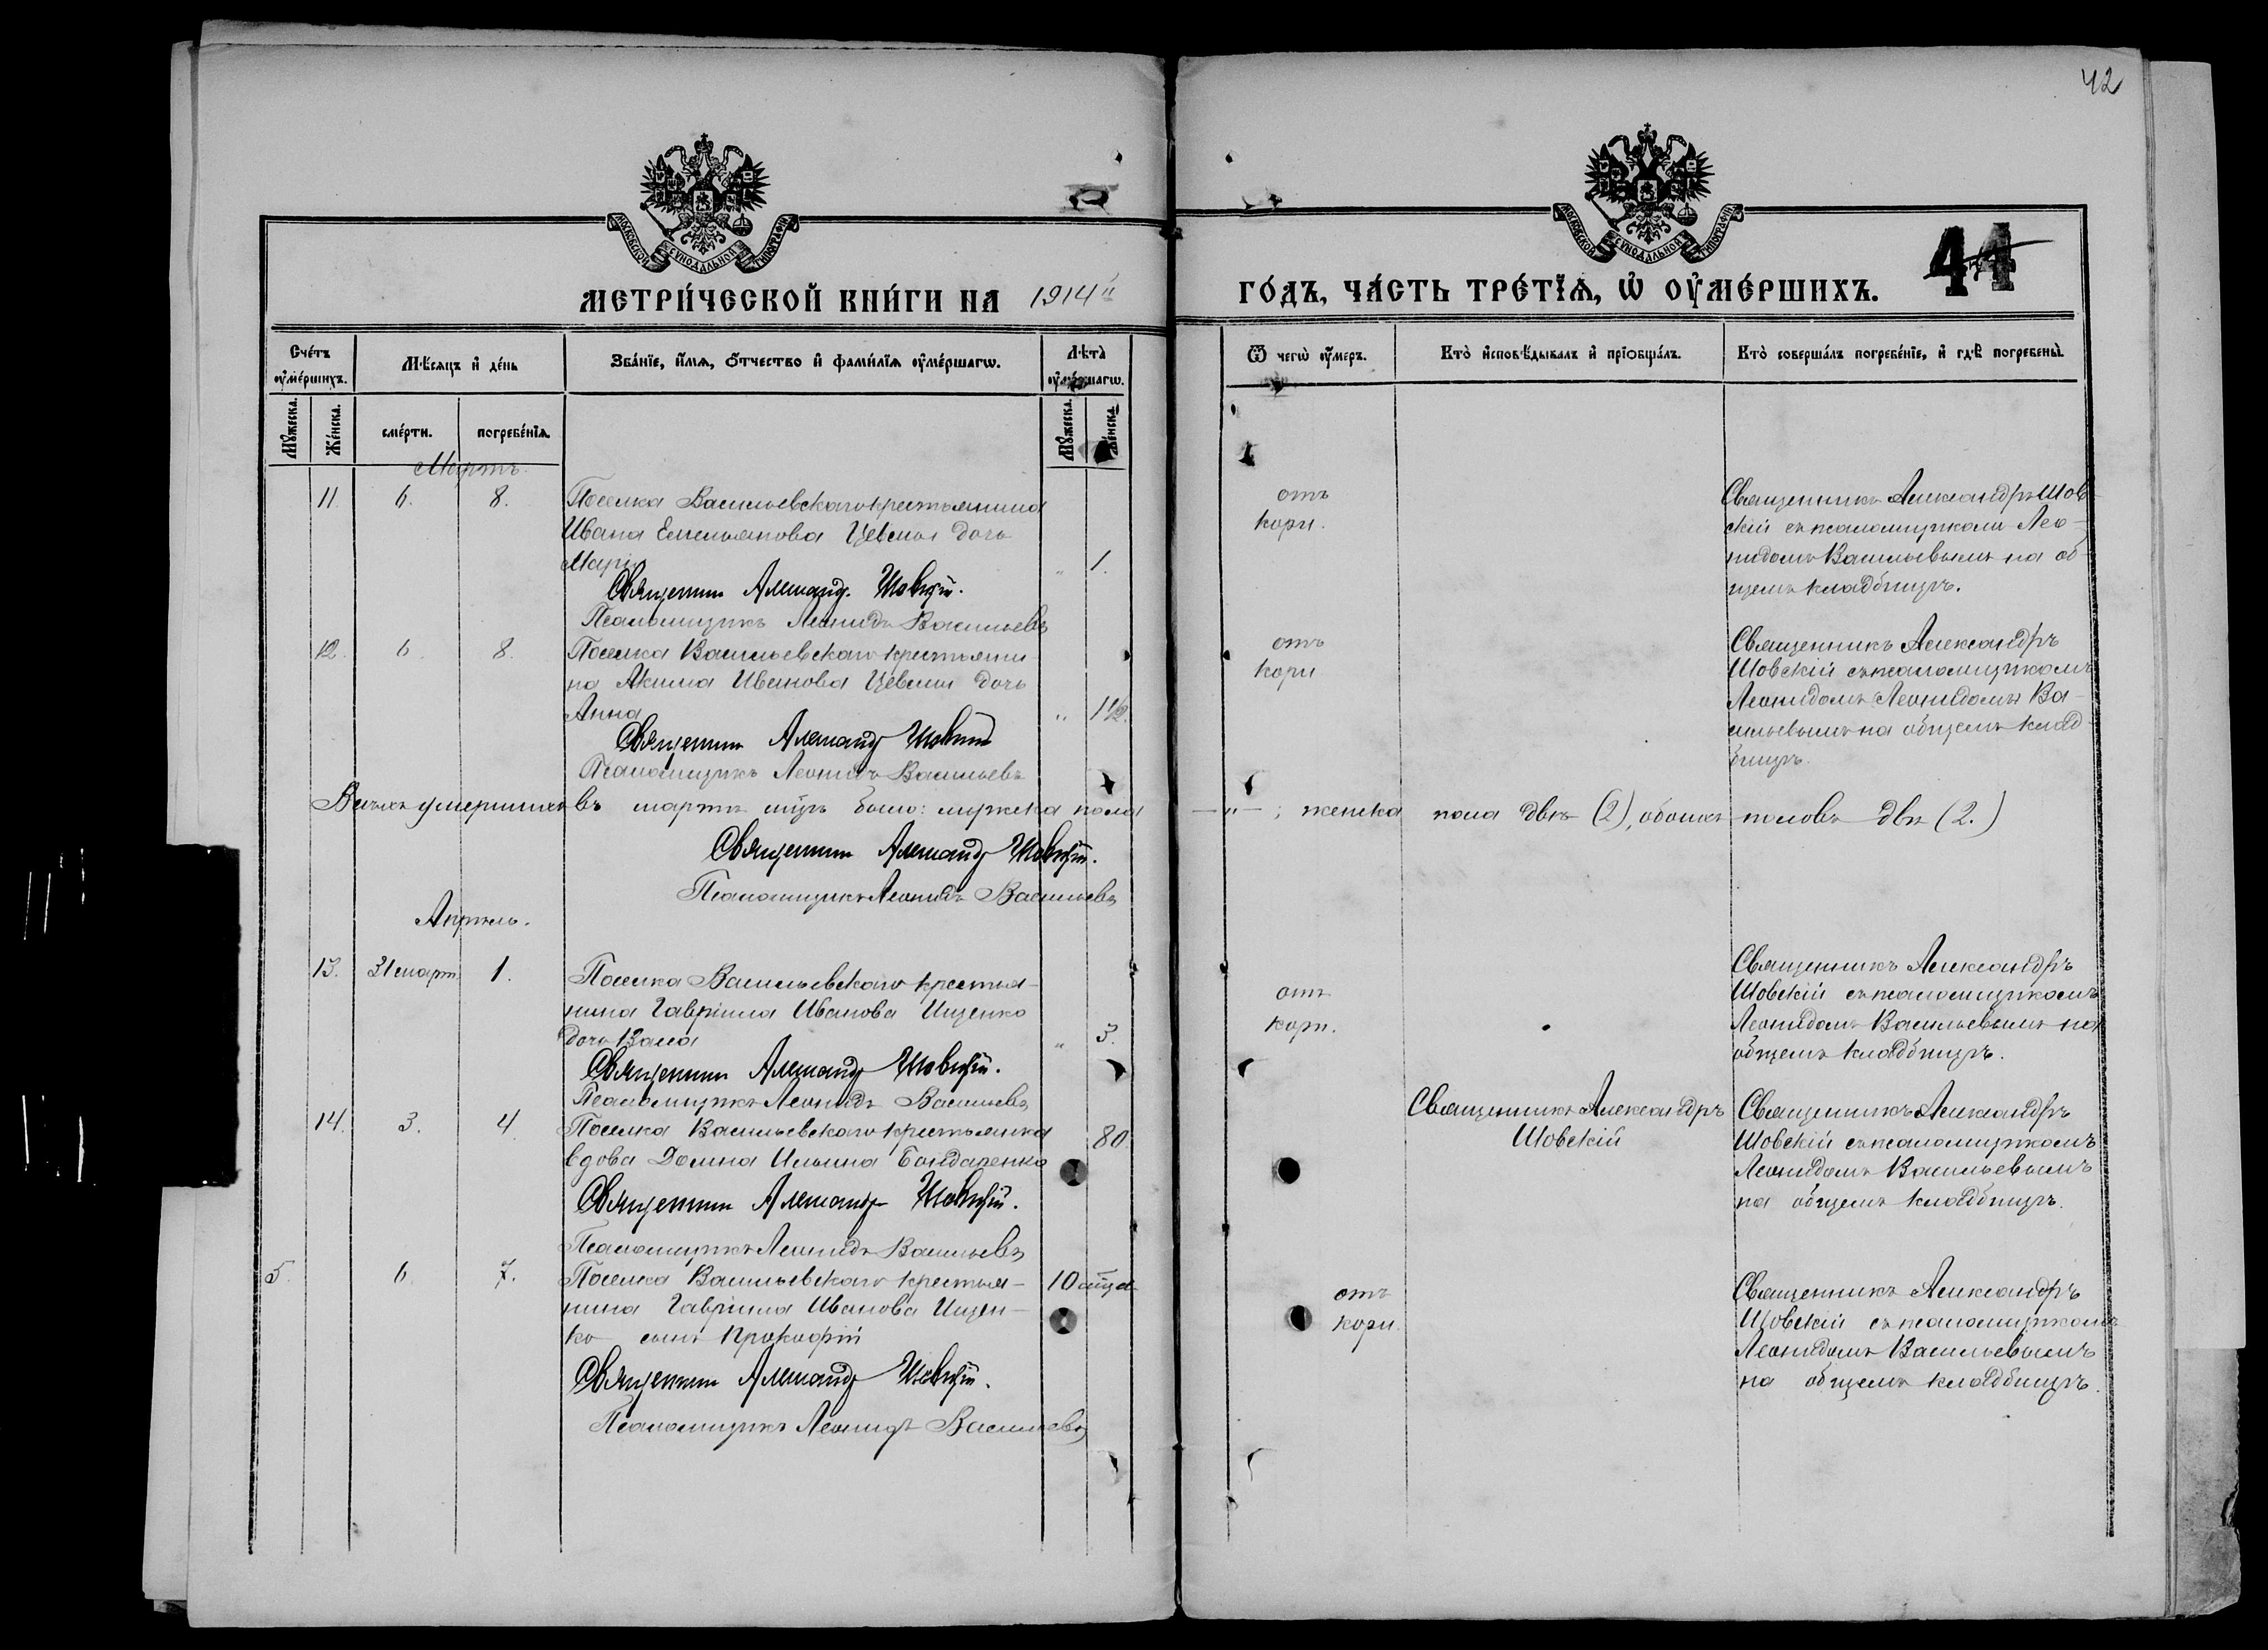 42
МОСКОВСКОЙ СѴНОДАЛЬНОЙ ТИПОГРАФІИ
МОСКОВСКОЙ СѴНОДАЛЬНОЙ ТИПОГРАФІИ
МЕТРИ́ЧЕСКОЙ КНИ́ГИ НА 1914й
ГО́ДЪ, ЧА́СТЬ ТРЕ́ТІѦ, Ѡ҆ ОУ҆МЕ́РШИХЪ.
44
Сче́тъ оу҆ме́ршихъ.
Мѣ́сѧцъ и҆ де́нь
Зва́нїе, и҆́мѧ, ѻ҆́тчество и҆ фами́лїѧ оу҆ме́ршагѡ.
Лѣ́та оу҆ме́ршагѡ.
Ѿ чегѡ̀ оу҆́меръ.
Кто̀ и҆сповѣ́дывалъ и҆ прїѡбща́лъ.
Кто̀ соверша́лъ погребе́нїе, и҆ гдѣ̀ погребены̀.
Мꙋ́жеска.
Же́нска.
сме́рти.
погребе́нїѧ.
Мꙋ́жеска.
Же́нска.
Мартъ
11. 6. 8. Поселка Васильевскаго крестьянина
Ивана Емельянова дочь
Марія " 1.
Священник Александр Шовскій.
Псаломщикъ Леонидъ Васильевъ
отъ
кори.
Священникъ Александръ Шов-
скій съ псаломщикомъ Лео-
нидомъ Васильевымъ на об-
щемъ кладбищѣ.
12. 6. 8. Поселка Васильевскаго крестьяни
на Акима Иванова дочь
Анна " 1 1/2.
Священник Александр Шовскій
Псаломщикъ Леонидъ Васильевъ
отъ
кори
Священникъ Александръ
Шовскій съ псаломщикомъ
Леонидомъ Леонидомъ Ва-
сильевымъ на общемъ клад-
бищѣ.
Всѣхъ умершихъ въ мартѣ мцѣ было: мужска пола —"— ; женска пола двѣ (2), обоихъ половъ двѣ (2.)
Священник Александр Шовскій.
Псаломщикъ Леонидъ Васильевъ
Апрѣль.
13. 31 март. 1. Поселка Васильевскаго крестья-
нина Гавріила Иванова Ищенко
дочь " 3.
Священник Александр Шовскій.
Псаломщикъ Леонидъ Васильевъ
отъ
кори.
Священникъ Александръ
Шовскій съ псаломщикомъ
Леонидомъ Васильевымъ на
общемъ кладбищѣ.
14. 3. 4. Поселка Васильевскаго крестьянка 80
вдова Домна Ильина Бондаренко
Священник Александр Шовскій.
Псаломщикъ Леонидъ Васильевъ
Священникъ Александръ
Шовскій
Священникъ Александръ
Шовскій съ псаломщикомъ
Леонидомъ Васильевымъ
на общемъ кладбищѣ.
5. 6. 7. Поселка Васильевскаго крестья- 10 мца
нина Гавріила Иванова Ищен-
ко сынъ Прокофій
Священник Александр Шовскій.
Псаломщикъ Леонидъ Васильевъ
отъ
кори.
Священникъ Александръ
Шовскій съ псаломщикомъ
Леонидомъ Васильевымъ
на общемъ кладбищѣ.